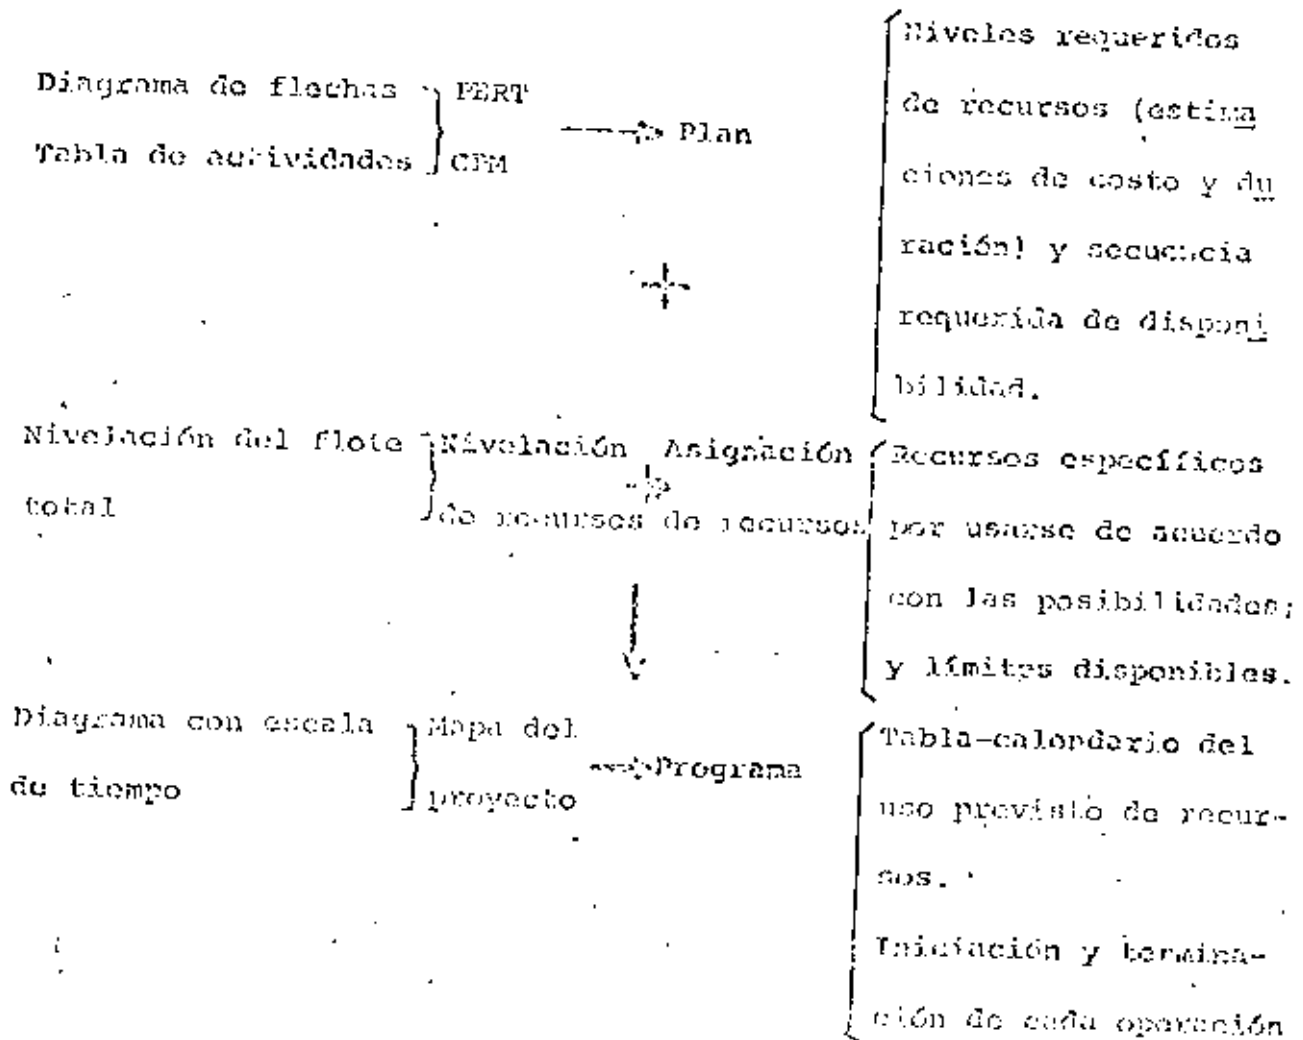 Diagrama de flechas } PERT
Tabla de actividades } CPM
→ Plan
{ Niveles requeridos
de recursos (estima
ciones de costo y du
ración) y secuencia
requerida de disponi
bilidad.
+
Nivelación del flote } Nivelación → Asignación
total } de recursos de recursos
{ Recursos específicos
por usarse de acuerdo
con las posibilidades;
y límites disponibles.
↓
Diagrama con escala } Mapa del
de tiempo } proyecto
→ Programa
{ Tabla-calendario del
uso previsto de recur-
sos.
Iniciación y termina-
ción de cada operación